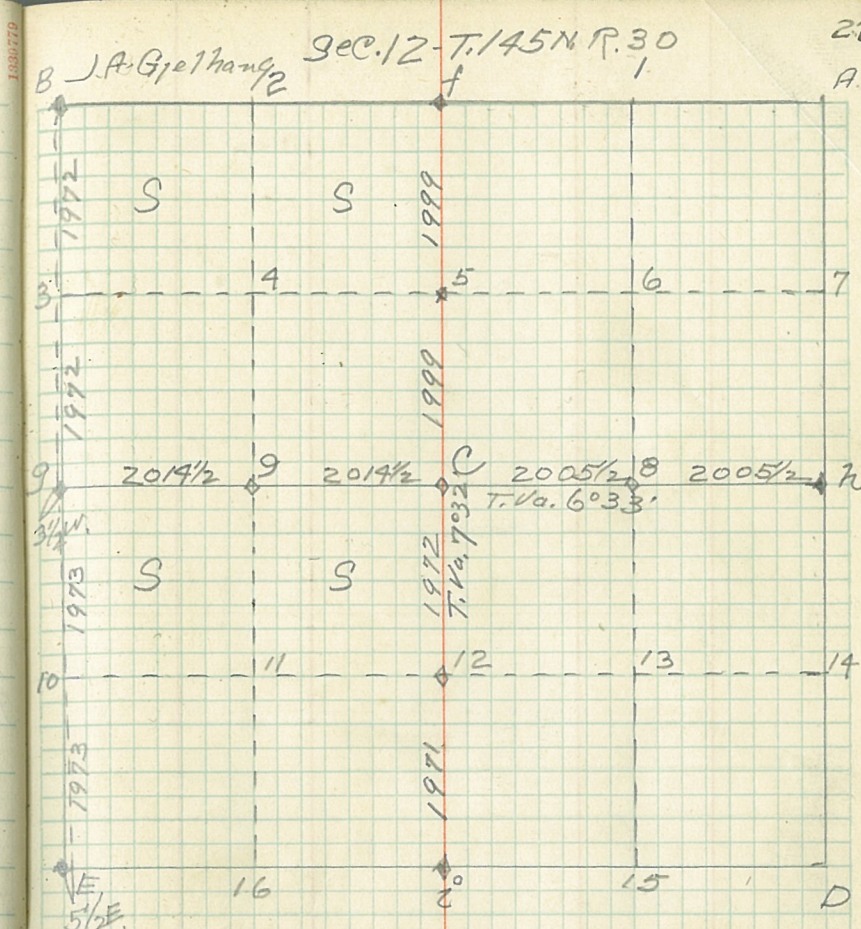 1339779
Sec. 12 - T. 145 N. R. 30
J.A. Gjelhang
B 2 f 1 A.
1972 S S 1999
3 4 5 6 7
1972 1999
g 2014½ 9 2014½ C 2005½ 8 2005½ h
T. Va. 6°33'
3½ W.
1973 S S 1972 T. Va. 7°32'
10 11 12 13 14
1973 1971
E 16 i 15 D
5½ E.